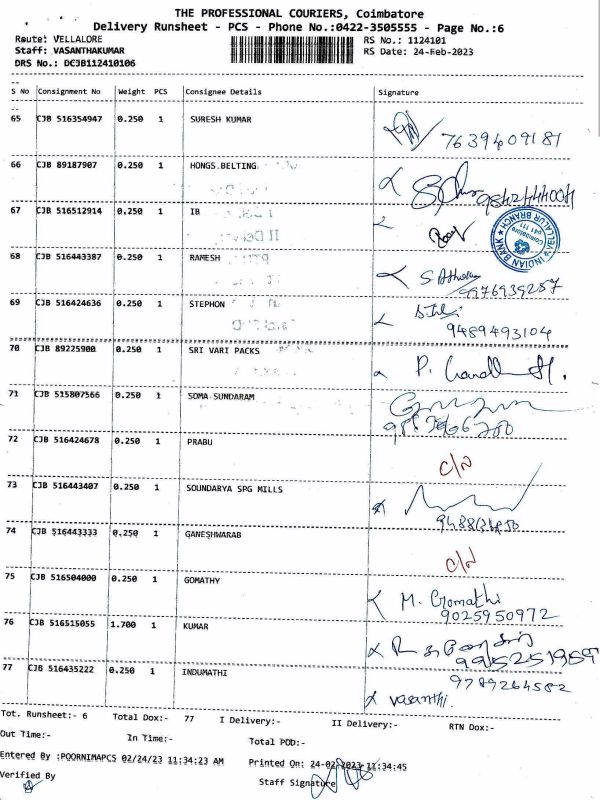 THE PROFESSIONAL COURIERS, Coimbatore
Delivery Runsheet - PCS - Phone No.:0422-3505555 - Page No.:6
Route: VELLALORE RS No.: 1124101
Staff: VASANTHAKUMAR RS Date: 24-Feb-2023
DRS No.: DCJB112410106
S No Consignment No Weight PCS Consignee Details Signature
65 CJB 516354947 0.250 1 SURESH KUMAR 7639409181
66 CJB 89187907 0.250 1 HONGS.BELTING
67 CJB 516512914 0.250 1 IB
INDIAN BANK VELLALUR BRANCH Coimbatore 641 111
68 CJB 516443387 0.250 1 RAMESH 9976939257
69 CJB 516424636 0.250 1 STEPHON 9489493104
70 CJB 89225900 0.250 1 SRI VARI PACKS
71 CJB 515807566 0.250 1 SOMA SUNDARAM
72 CJB 516424678 0.250 1 PRABU C/N
73 CJB 516443407 0.250 1 SOUNDARYA SPG MILLS
74 CJB 516443333 0.250 1 GANESHWARAB C/N
75 CJB 516504000 0.250 1 GOMATHY M. Gomathi
9025950972
76 CJB 516515055 1.700 1 KUMAR
995251959
77 CJB 516435222 0.250 1 INDUMATHI 9789264582
vasanthi.
Tot. Runsheet:- 6 Total Dox:- 77 I Delivery:- II Delivery:- RTN Dox:-
Out Time:- In Time:- Total POD:-
Entered By :POORNIMAPCS 02/24/23 11:34:23 AM Printed On: 24-02-2023 11:34:45
Verified By Staff Signature